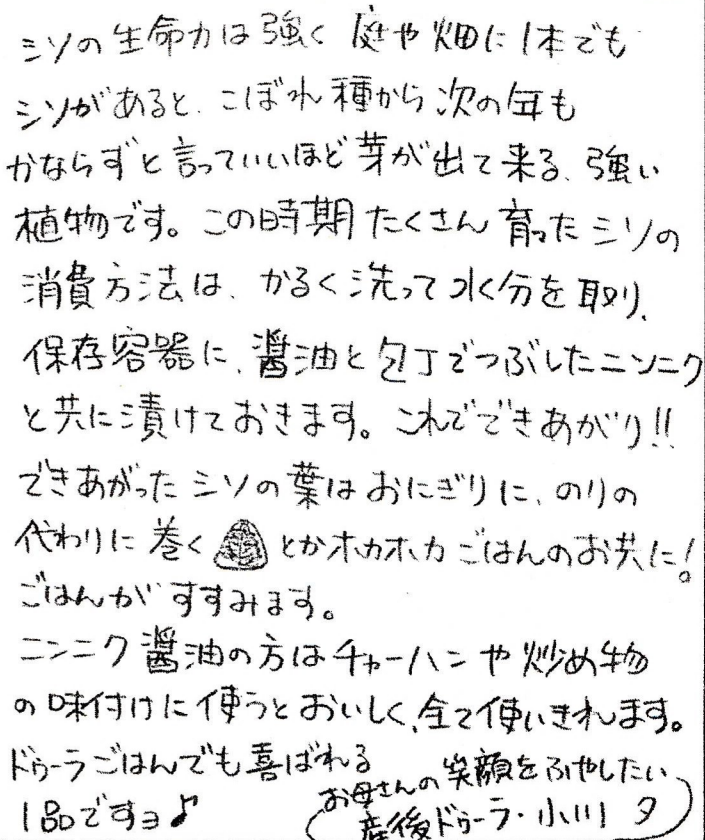 シソの生命力は強く 庭や畑に1本でも
シソがあると、こぼれ種から次の年も
かならずと言っていいほど芽が出て来る、強い
植物です。この時期たくさん育ったシソの
消費方法は、かるく洗って水分を取り、
保存容器に、醤油と包丁でつぶしたニンニク
と共に漬けておきます。これでできあがり!!
できあがったシソの葉はおにぎりに、のりの
代わりに巻く とかホカホカごはんのお共に!
ごはんがすすみます。
ニンニク醤油の方はチャーハンや炒め物
の味付けに使うとおいしく、全て使いきれます。
ドゥーラごはんでも喜ばれる
1品ですョ♪
お母さんの笑顔をふやしたい
産後ドゥーラ・小川 夕